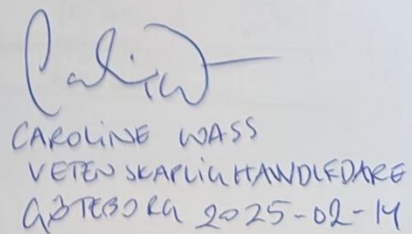 CAROLINE WASS
VETENSKAPLIG HANDLEDARE
GÖTEBORG 2025-02-14